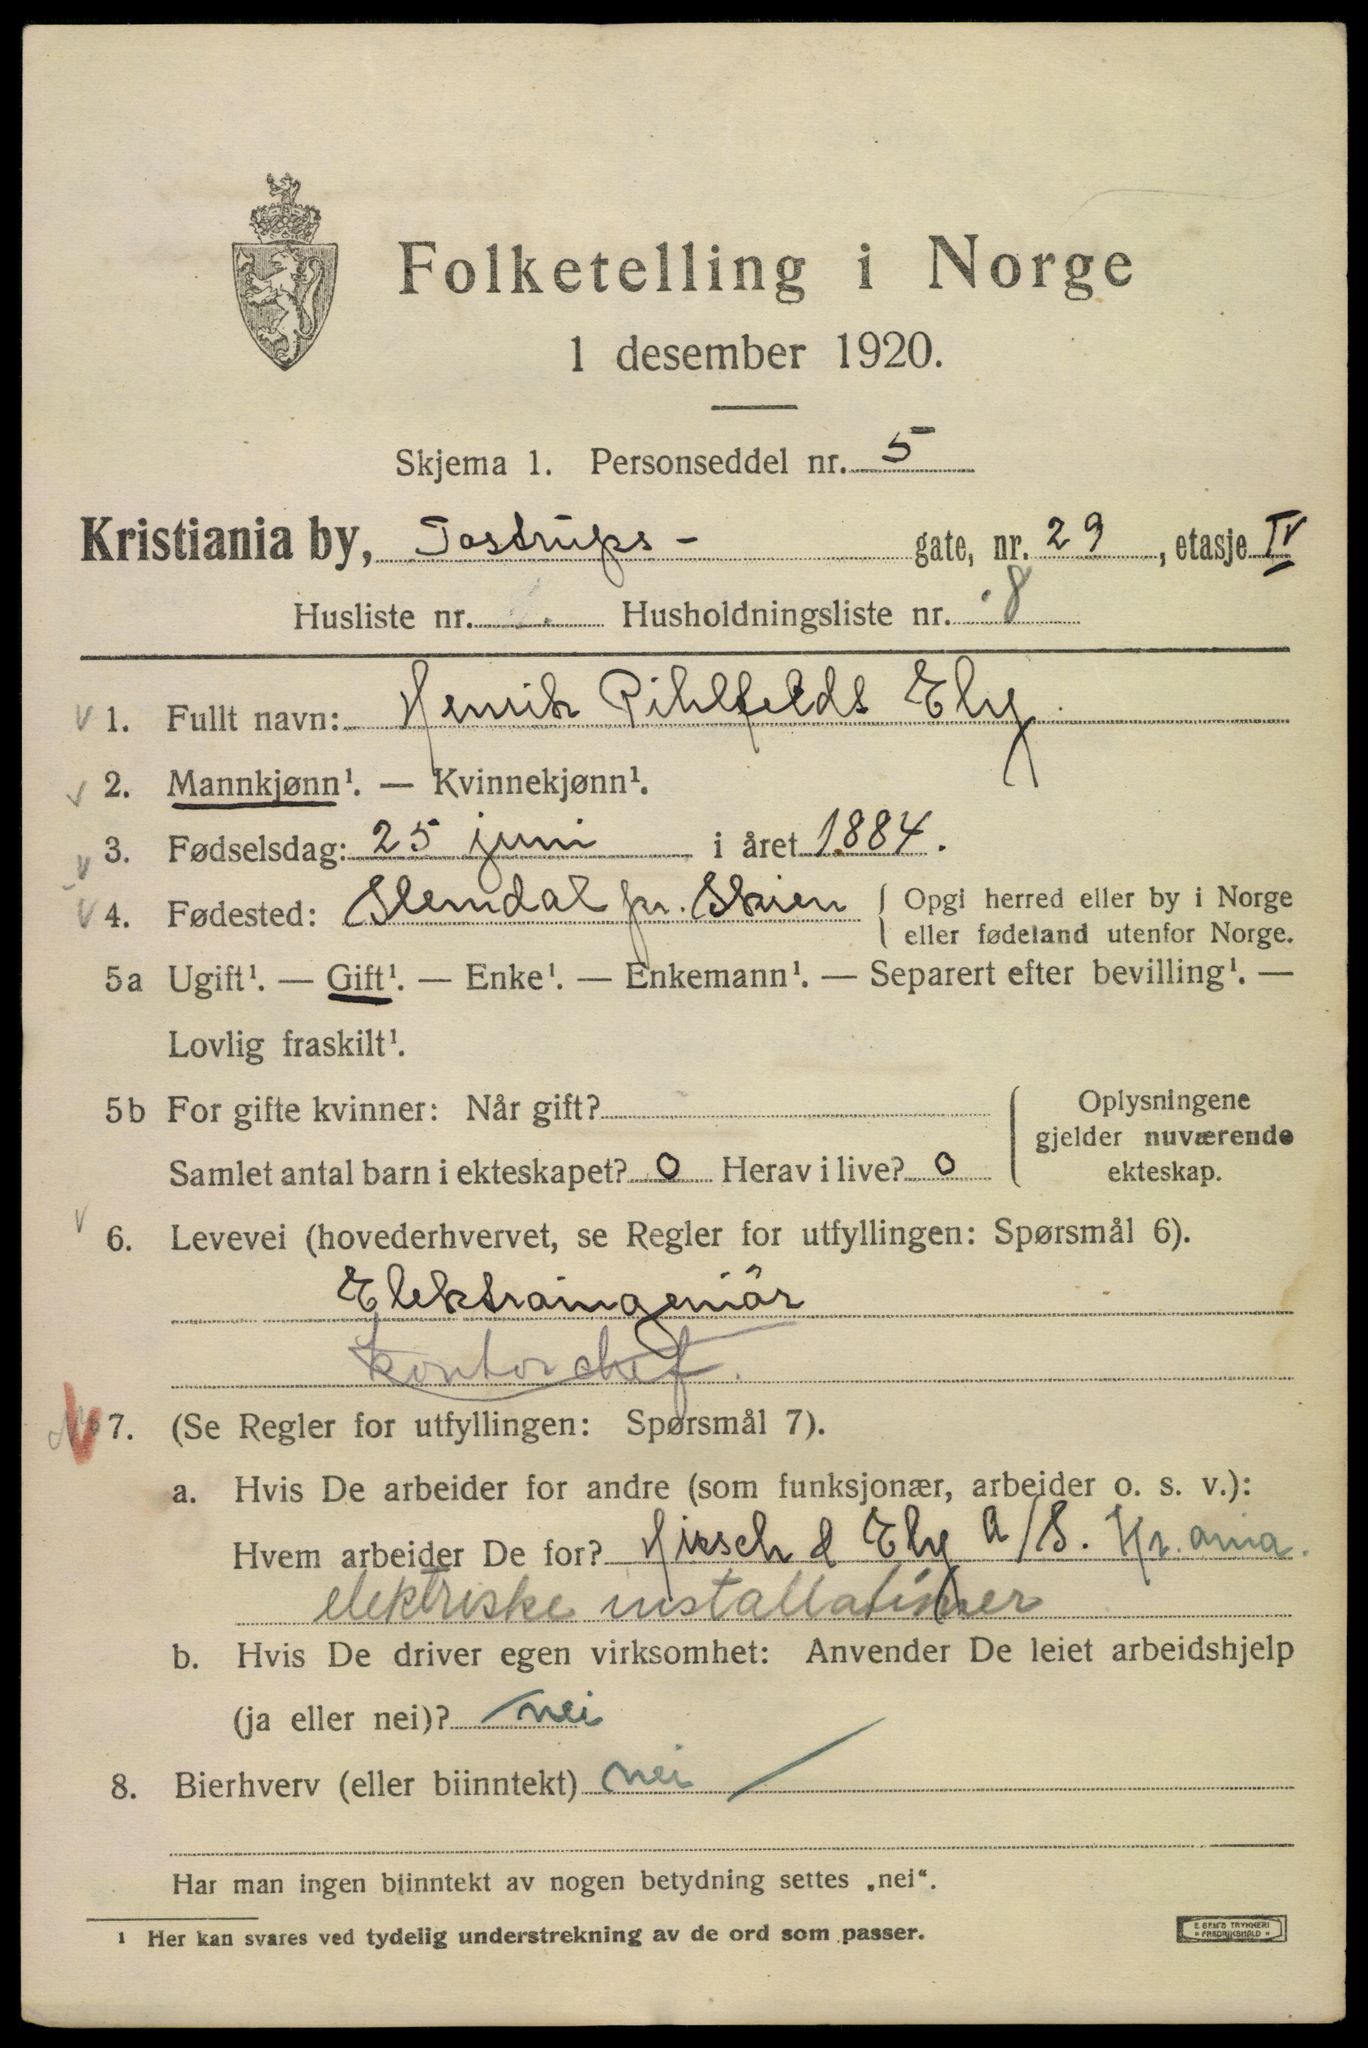 Folketelling i Norge
1 desember 1920.
Skjema 1. Personseddel nr. 5
Kristiania by, Tostrups- gate, nr. 29, etasje IV
Husliste nr. Husholdningsliste nr. 8
V 1. Fullt navn: Henrik Pihlfeldt Elÿ
V 2. Mannkjønn¹. — Kvinnekjønn¹.
V 3. Fødselsdag: 25 juni i året 1884.
V 4. Fødested: Slemdal pr. Skien { Opgi herred eller by i Norge
eller fødeland utenfor Norge.
5a Ugift¹. — Gift¹. — Enke¹. — Enkemann¹. — Separert efter bevilling¹. —
Lovlig fraskilt¹.
5b For gifte kvinner: Når gift?
Samlet antal barn i ekteskapet? 0 Herav i live? 0
Oplysningene
gjelder nuværende
ekteskap.
V 6. Levevei (hovederhvervet, se Regler for utfyllingen: Spørsmål 6).
Elektroingeniör
kontorchef.
7. (Se Regler for utfyllingen: Spørsmål 7).
a. Hvis De arbeider for andre (som funksjonær, arbeider o. s. v.):
Hvem arbeider De for? Hirsch & Ely A/S. Kr.ania.
elektriske installationer
b. Hvis De driver egen virksomhet: Anvender De leiet arbeidshjelp
(ja eller nei)? nei
8. Bierhverv (eller biinntekt) nei
Har man ingen biinntekt av nogen betydning settes „nei“.
1 Her kan svares ved tydelig understrekning av de ord som passer.
E. SEM'S TRYKKERI
FREDRIKSHALD